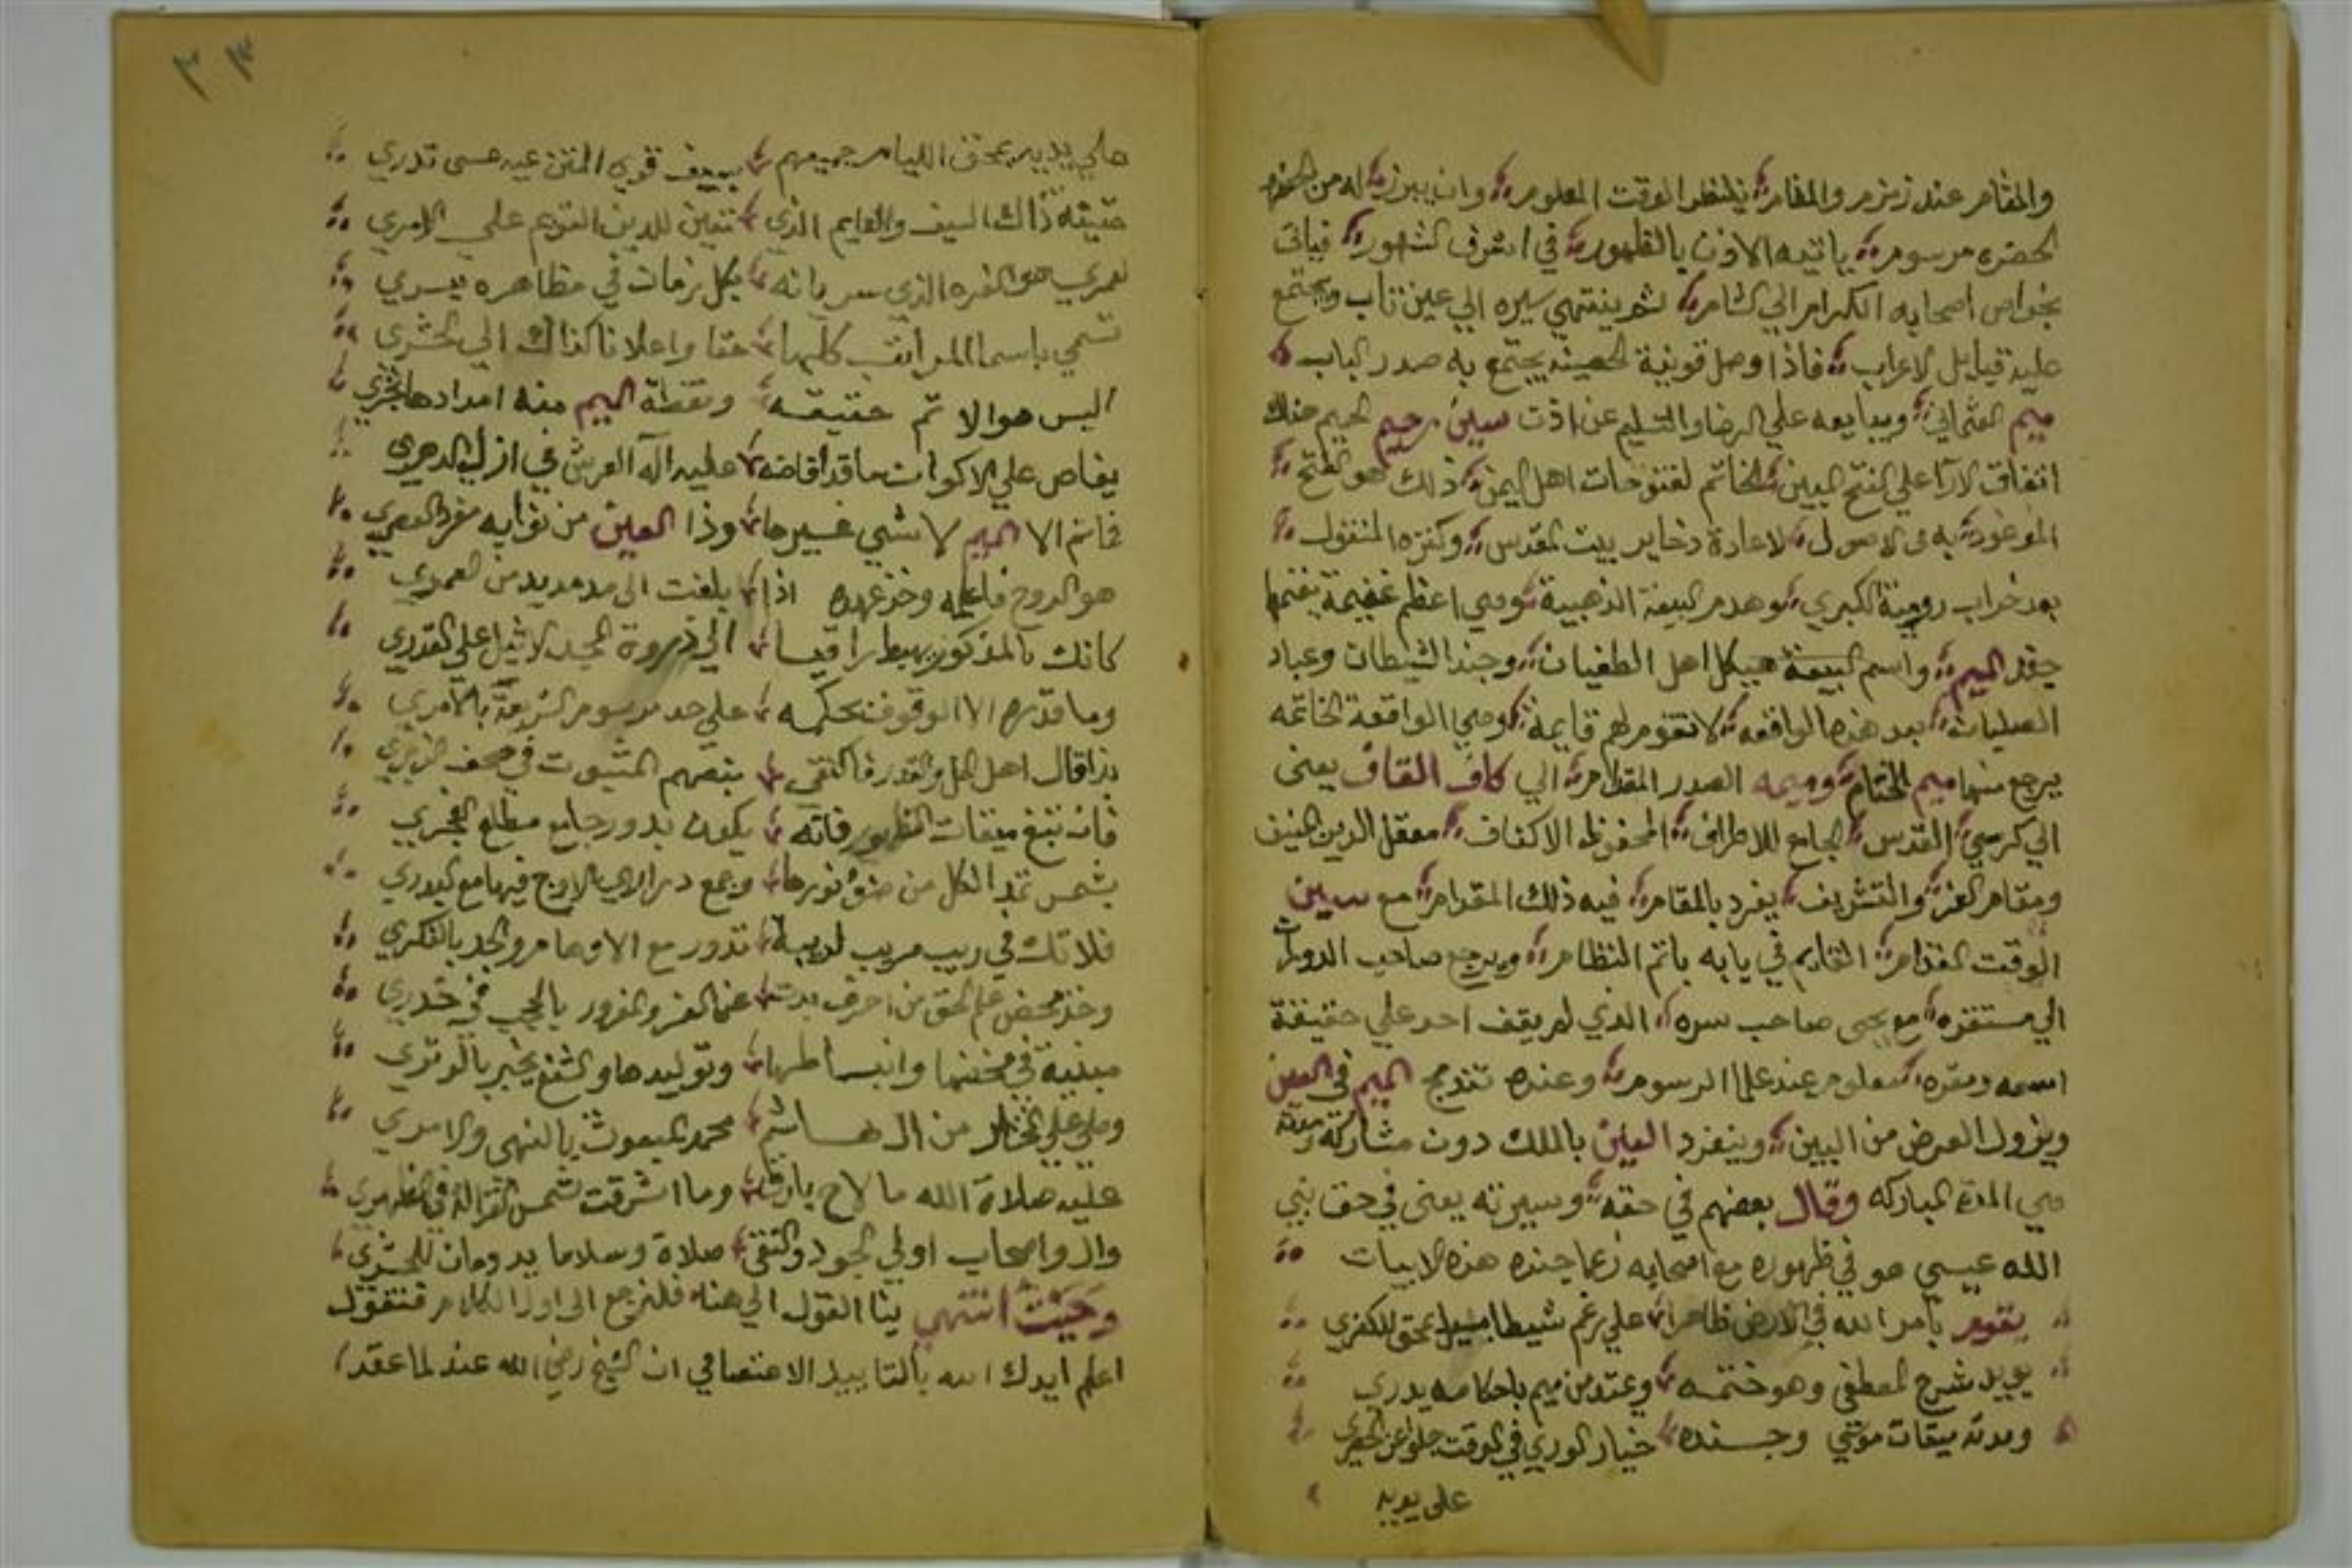 والمقام عند زمزم والمقام ينتظر الوقت المعلوم وان يبرز له من الحضره
الحضره مرسوم ياتيه الاذن بالظهور في اشرف الشهور فياتي
بخواص اصحابه الكرام الي الشام ثم ينتهي سيره الي عين تاب ويجتمع
عليه قبايل الاعراب فاذا وصل قونية الحصينه يجتمع به صدر الباب
ميم العثماني ويبايعه علي الرضا والتسليم عن اذن سين رحيم الحيم هناك
اتفاق الارآ علي الفتح المبين الخاتم لفتوحات اهل اليمن ذلك هو الفتح
الموعود به في الاصول لاعادة ذخاير بيت المقدس وكنزه المنقول
بعد خراب رومية الكبري وهدم البيعة الذهبية وهي اعظم غنيمة يغنمها
جفر الميم واسم البيعة هيكل اهل الطغيان وجند الشيطان وعباد
الصلبان بعد هذه الواقعه لا تقوم لهم قايمة وهي الواقعة الخاتمه
يرجع منها ميم الختام وميمه الصدر المقدام الي كاف القاف يعني
الي كرسي القدس الجامع الاطراف المحفوظ الاكناف معقل الدين الحنيف
ومقام العز والتشريف يفرد بالمقام فيه ذلك المقدام مع سين
الوقت القدام القايم في بابه باتم النظام ويرجع صاحب الدولة
الي مستقره مع يحيى صاحب سره الذي لم يقف احد علي حقيقة
اسمه ومقره معلوم عند علما الرسوم وعنده تندمج الميم في العين
ويزول العرض من البين وينفرد العين بالملك دون مشاركة ومدته
هي المدة المباركه وقال بعضهم في حقه وسيرته يعني في حق نبي
الله عيسي هو في ظهوره مع اصحابه زعما جنده هذه الابيات
يقوم بامر الله في الارض ظاهرا علي رغم شيطان يمحق للكفري
يويد شرع المصطفي وهو ختمه وعتد من ميم باحكامه يدري
ومدته ميقات موسي وجنده خيار الوري في الوقت خلو عن الحصري
علي يديه
٣٣
علي يديه محق الليام جميعهم بسيف قوي المتن عيه عسى تدري
حقيقة ذاك السيف والقايم الذي تعين للدين القويم علي الامري
لعمري هو الفرد الذي سر بانه بكل زمان في مظاهره يسري
تسمي باسما المراتب كلها خفا واعلانا كذاك الي الحشري
اليس هو الاتم حقيقه ونقطة الميم منه امدادها تجري
يفاض علي الاكوان ما قد افاضه عليه اله العرش في ازل الدهري
فما ثم الا الميم لا شي غيرها وذا العين من نوابه مفرد العصري
هو الروح فاعلمه وخذ عهده اذا بلغت الي مد مديد من العمري
كانك بالمذكور يهبط راقيا الي ذروة المجد الاثيل علي القدري
وما قدره الا الوقوف بحكمه علي حد مرسوم الشريعة بالامري
بذا قال اهل الحل والقدر فالتقى بنصهم المثبوت في صحف الزبري
فان تبغ ميقات الظهور فانه يكون بدور جامع مطلع الفجري
بشمس تمد الكل من ضؤ نورها وجمع دراري الاوج فيها مع البدري
فلا تك في ريب مريب لريبة تدور مع الاوهام والجد بالفكري
وخذ محض علم الحق من احرف بدت عن الغر والغرور بالحجب في خدري
مبنية في مخضها وانبساطها وتوليدها والشفع يخبر بالوتري
وصلي علي المختار من ال هاشم محمد المبعوث بالنهي والامري
عليه صلاة الله ما لاح بارق وما اشرقت شمس الغزالة في الظهري
وال واصحاب اولي الجود والتقى صلاة وسلاما يدومان للحشري
وحيث انتهي بنا القول الي هنا فلنرجع الى اول الكلام فنقول
اعلم ايدك الله بالتاييد الاعتصامي ان الشيخ رضي الله عنه لما عقد